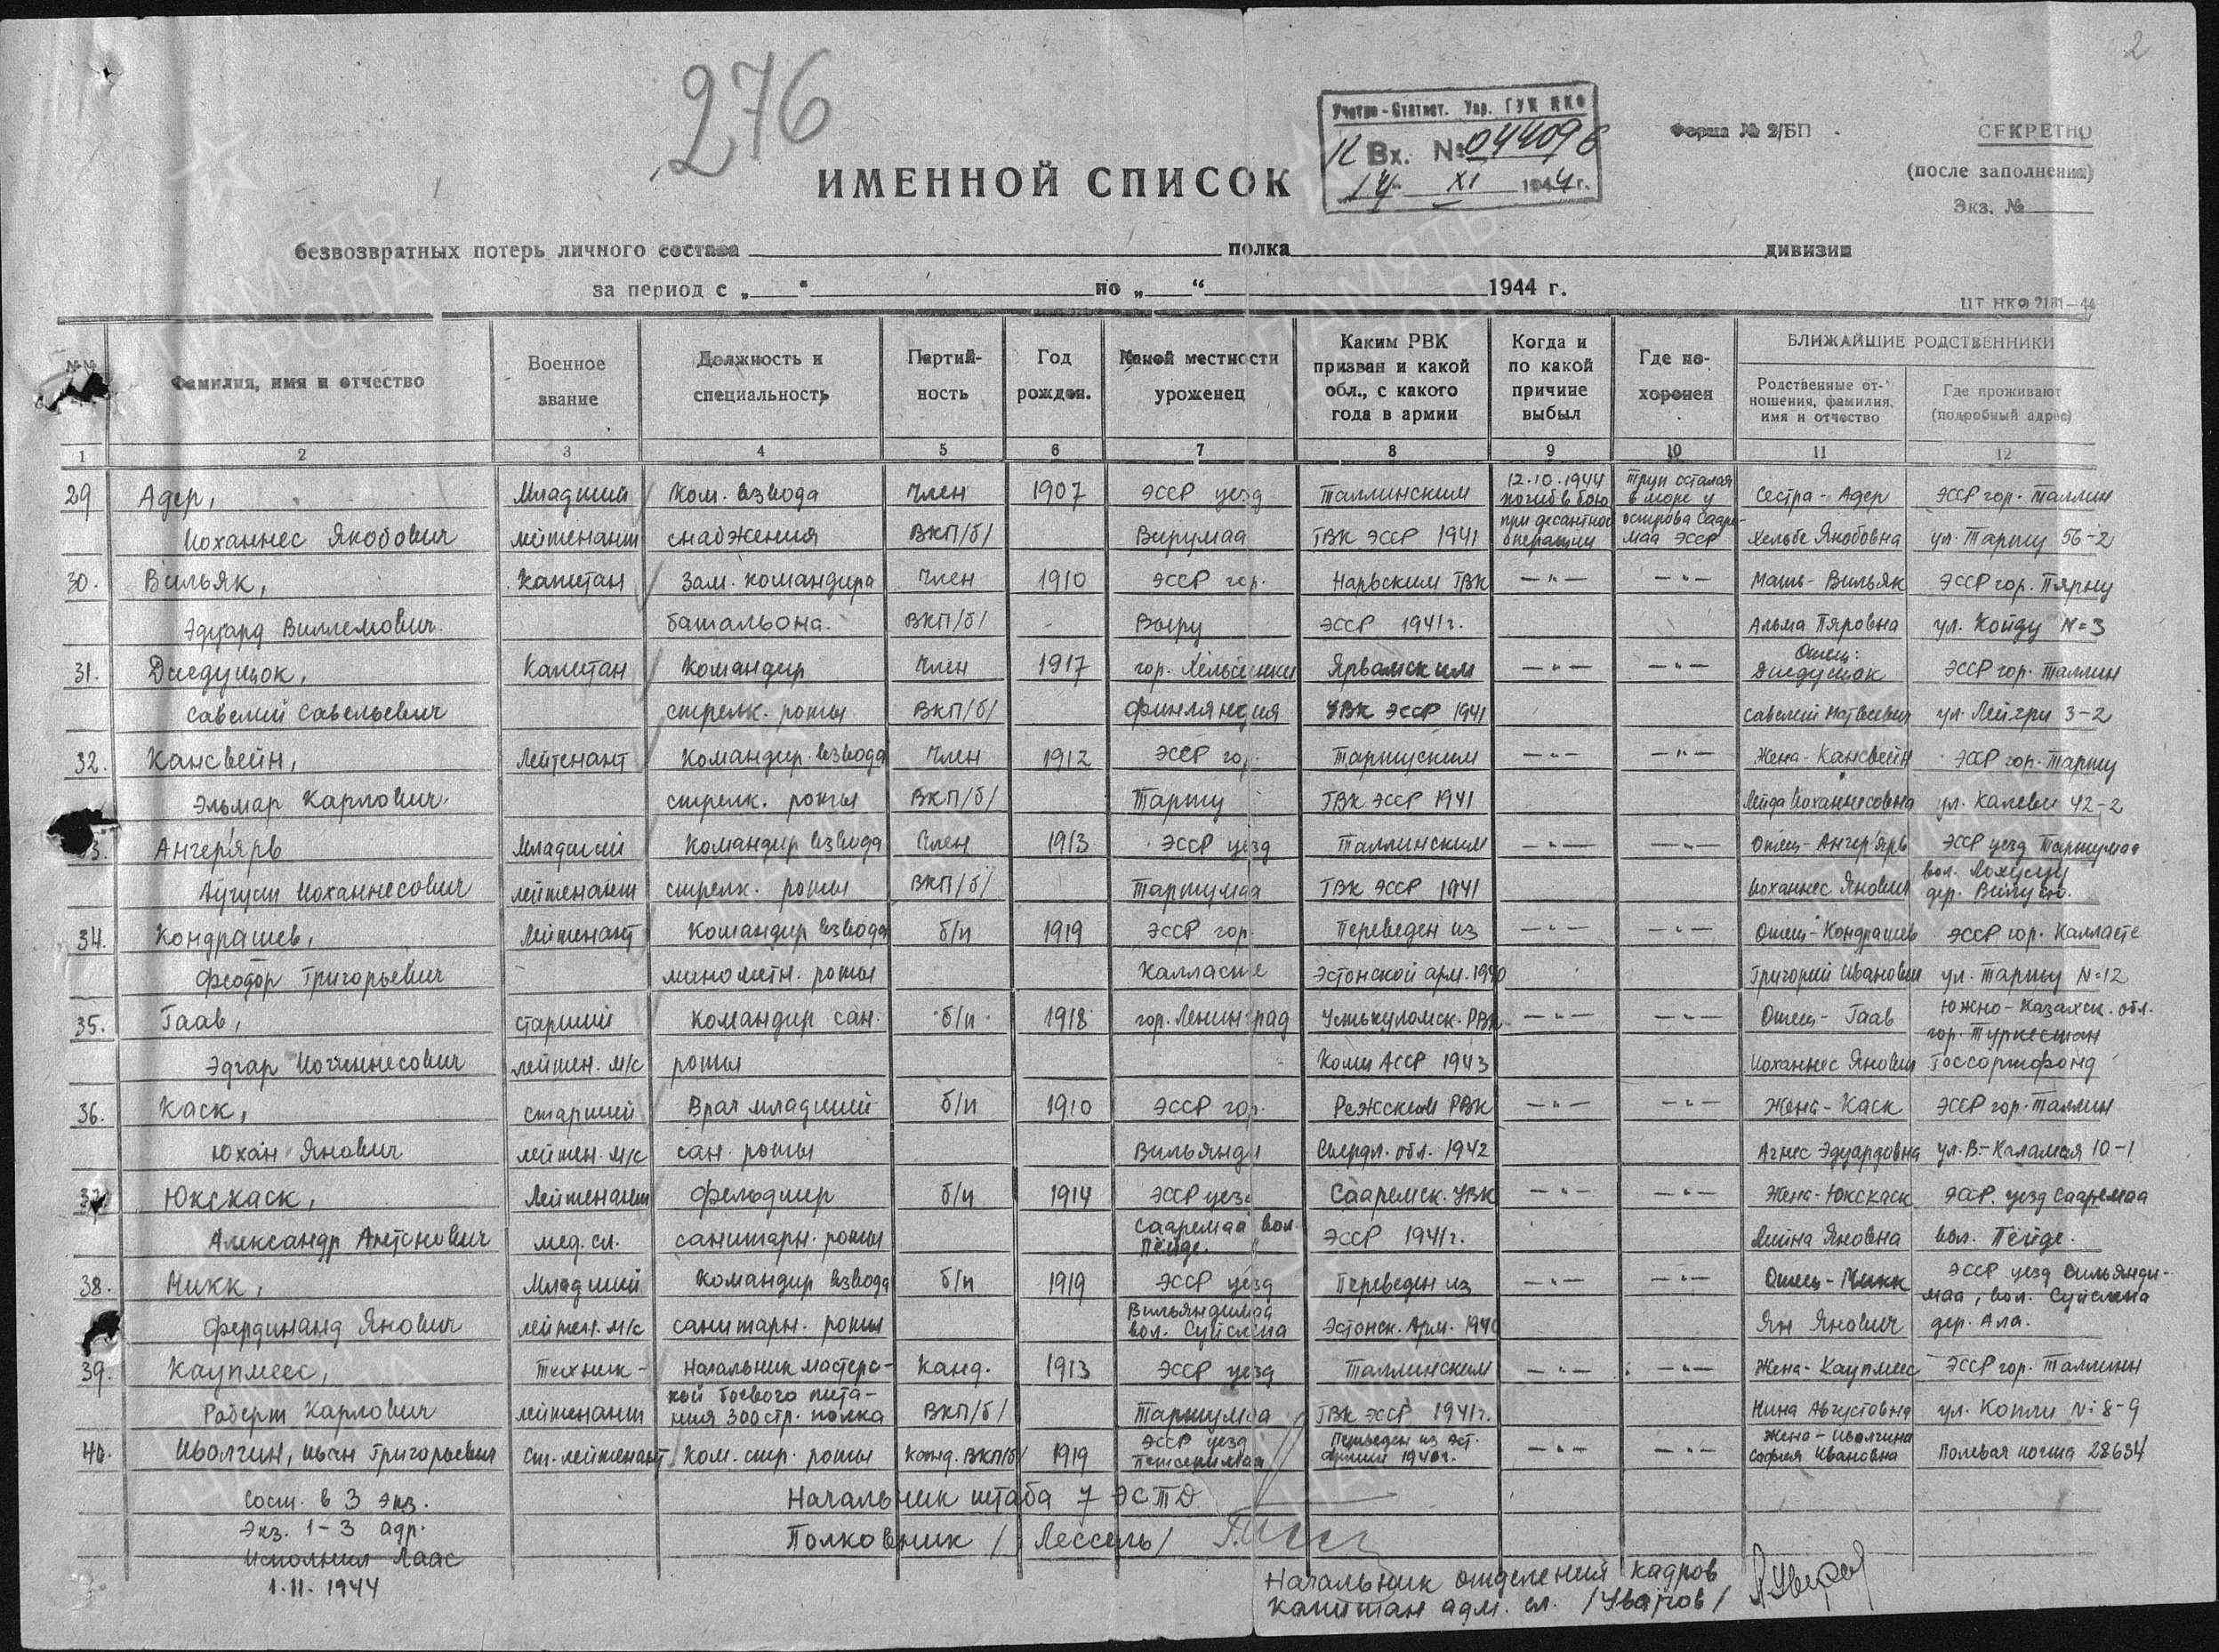 2
276
Учетно-Статист. Упр. ГУК НКО
Вх. № 04409
14 XI 1944 г.
Форма № 2/БП
СЕКРЕТНО
(после заполнения)
Экз. №
ИМЕННОЙ СПИСОК
безвозвратных потерь личного состава полка дивизии
за период с „ “ по „ “ 1944 г.
ШТ НКО 2181—44
№№ Фамилия, имя и отчество Военное звание Должность и специальность Партий-ность Год рожден. Какой местности уроженец Каким РВК призван и какой обл., с какого года в армии Когда и по какой причине выбыл Где по-хоронен БЛИЖАЙШИЕ РОДСТВЕННИКИ
Родственные от-ношения, фамилия, имя и отчество Где проживают (подробный адрес)
1 2 3 4 5 6 7 8 9 10 11 12
29 Адер, Младший Ком. взвода Член 1907 ЭССР уезд Таллинским 12.10.1944 погиб в бою Труп остался в море у Сестра - Адер ЭССР гор. Таллин
Иоханнес Якобович лейтенант снабжения ВКП/б/ Вирумаа ТВК ЭССР 1941 при десантной операции острова Сааре-маа ЭССР Хельбе Якобовна ул. Тарту 56-2
30. Вильяк, Капитан Зам. командира Член 1910 ЭССР гор. Нарвским ТВК —"— —"— Мать - Вильяк ЭССР гор. Пярну
Эдуард Виллемович. батальона. ВКП/б/ Выру ЭССР 1941г. Альма Пяровна ул. Койду №3
31. Диедушок, Капитан Командир Член 1917 гор. Хельсинки Ярвамским —"— —"— Отец: Диедушок ЭССР гор. Таллин
Савелий Савельевич стрелк. роты ВКП/б/ Финляндия УВК ЭССР 1941 Савелий Матвеевич ул. Лейгри 3-2
32. Кансвейн, Лейтенант Командир взвода Член 1912 ЭССР гор. Тартуским —"— —"— Жена - Кансвейн ЭССР гор. Тарту
Эльмар Карлович. стрелк. роты ВКП/б/ Тарту ТВК ЭССР 1941 Лейда Иоханнесовна ул. Калеви 42-2
33. Ангерярв Младший Командир взвода Член 1913 ЭССР уезд Таллинским —"— —"— Отец - Ангерярв ЭССР уезд Тартумаа
Аугуст Иоханнесович лейтенант стрелк. роты ВКП/б/ Тартумаа ТВК ЭССР 1941 Иоханнес Янович вол. Лохусуу дер.
34. Кондрашев, Лейтенант Командир взвода б/п 1919 ЭССР гор. Переведен из —"— —"— Отец - Кондрашев ЭССР гор. Калласте
Феодор Григорьевич минометн. роты Калласте Эстонской арм. 1940 Григорий Иванович ул. Тарту №12
35. Гаав, старший Командир сан. б/п 1918 гор. Ленинград Устькуломск. РВК —"— —"— Отец - Гаав Южно-Казахск. обл.
Эдгар Иоханнесович лейтен. м/с роты Коми АССР 1943 Иоханнес Янович гор. Туркестан Госсортфонд
36. Каск, старший Врач младший б/п 1910 ЭССР гор. Режским РВК —"— —"— Жена - Каск ЭССР гор. Таллин
Юхан Янович лейтен. м/с сан. роты Вильянди Свердл. обл. 1942 Агнес Эдуардовна ул. В-Каламая 10-1
37. Юкскаск, Лейтенант Фельдшер б/п 1914 ЭССР уезд Сааремск. УВК —"— —"— Жена - Юкскаск ЭССР. уезд Сааремаа
Александр Антонович мед. сл. санитарн. роты Сааремаа вол. Пейде. ЭССР 1941г. Лейна Яновна вол. Пейде.
38. Микк, Младший Командир взвода б/п 1919 ЭССР уезд Переведен из —"— —"— Отец - Микк ЭССР уезд Вильянди-
Фердинанд Янович лейтен. м/с санитарн. роты Вильяндимаа вол. Суислепа Эстонск. Арм. 1940 Ян Янович маа, вол. Суислепа дер. Ала.
39. Каупмеес, Техник- Начальник мастерс- Канд. 1913 ЭССР уезд Таллинским —"— —"— Жена - Каупмеес ЭССР гор. Таллинн
Роберт Карлович лейтенант кой боевого пита-ния 300 стр. полка ВКП/б/ Тартумаа ТВК ЭССР 1941г. Нина Августовна ул. Копли №8-9
40. Иволгин, Иван Григорьевич Ст. лейтенант Ком. стр. роты Канд. ВКП/б/ 1919 ЭССР уезд Петсеримаа Переведен из эст. армии 1940г. —"— —"— Жена - Иволгина София Ивановна Полевая почта 28634
Сост. в 3 экз. Начальник штаба 7 ЭСТД
Экз. 1-3 адр. Полковник / Лессель /
Исполнил Лаас
1.11.1944
Начальник отделения кадров
капитан адм. сл. /Уваров/